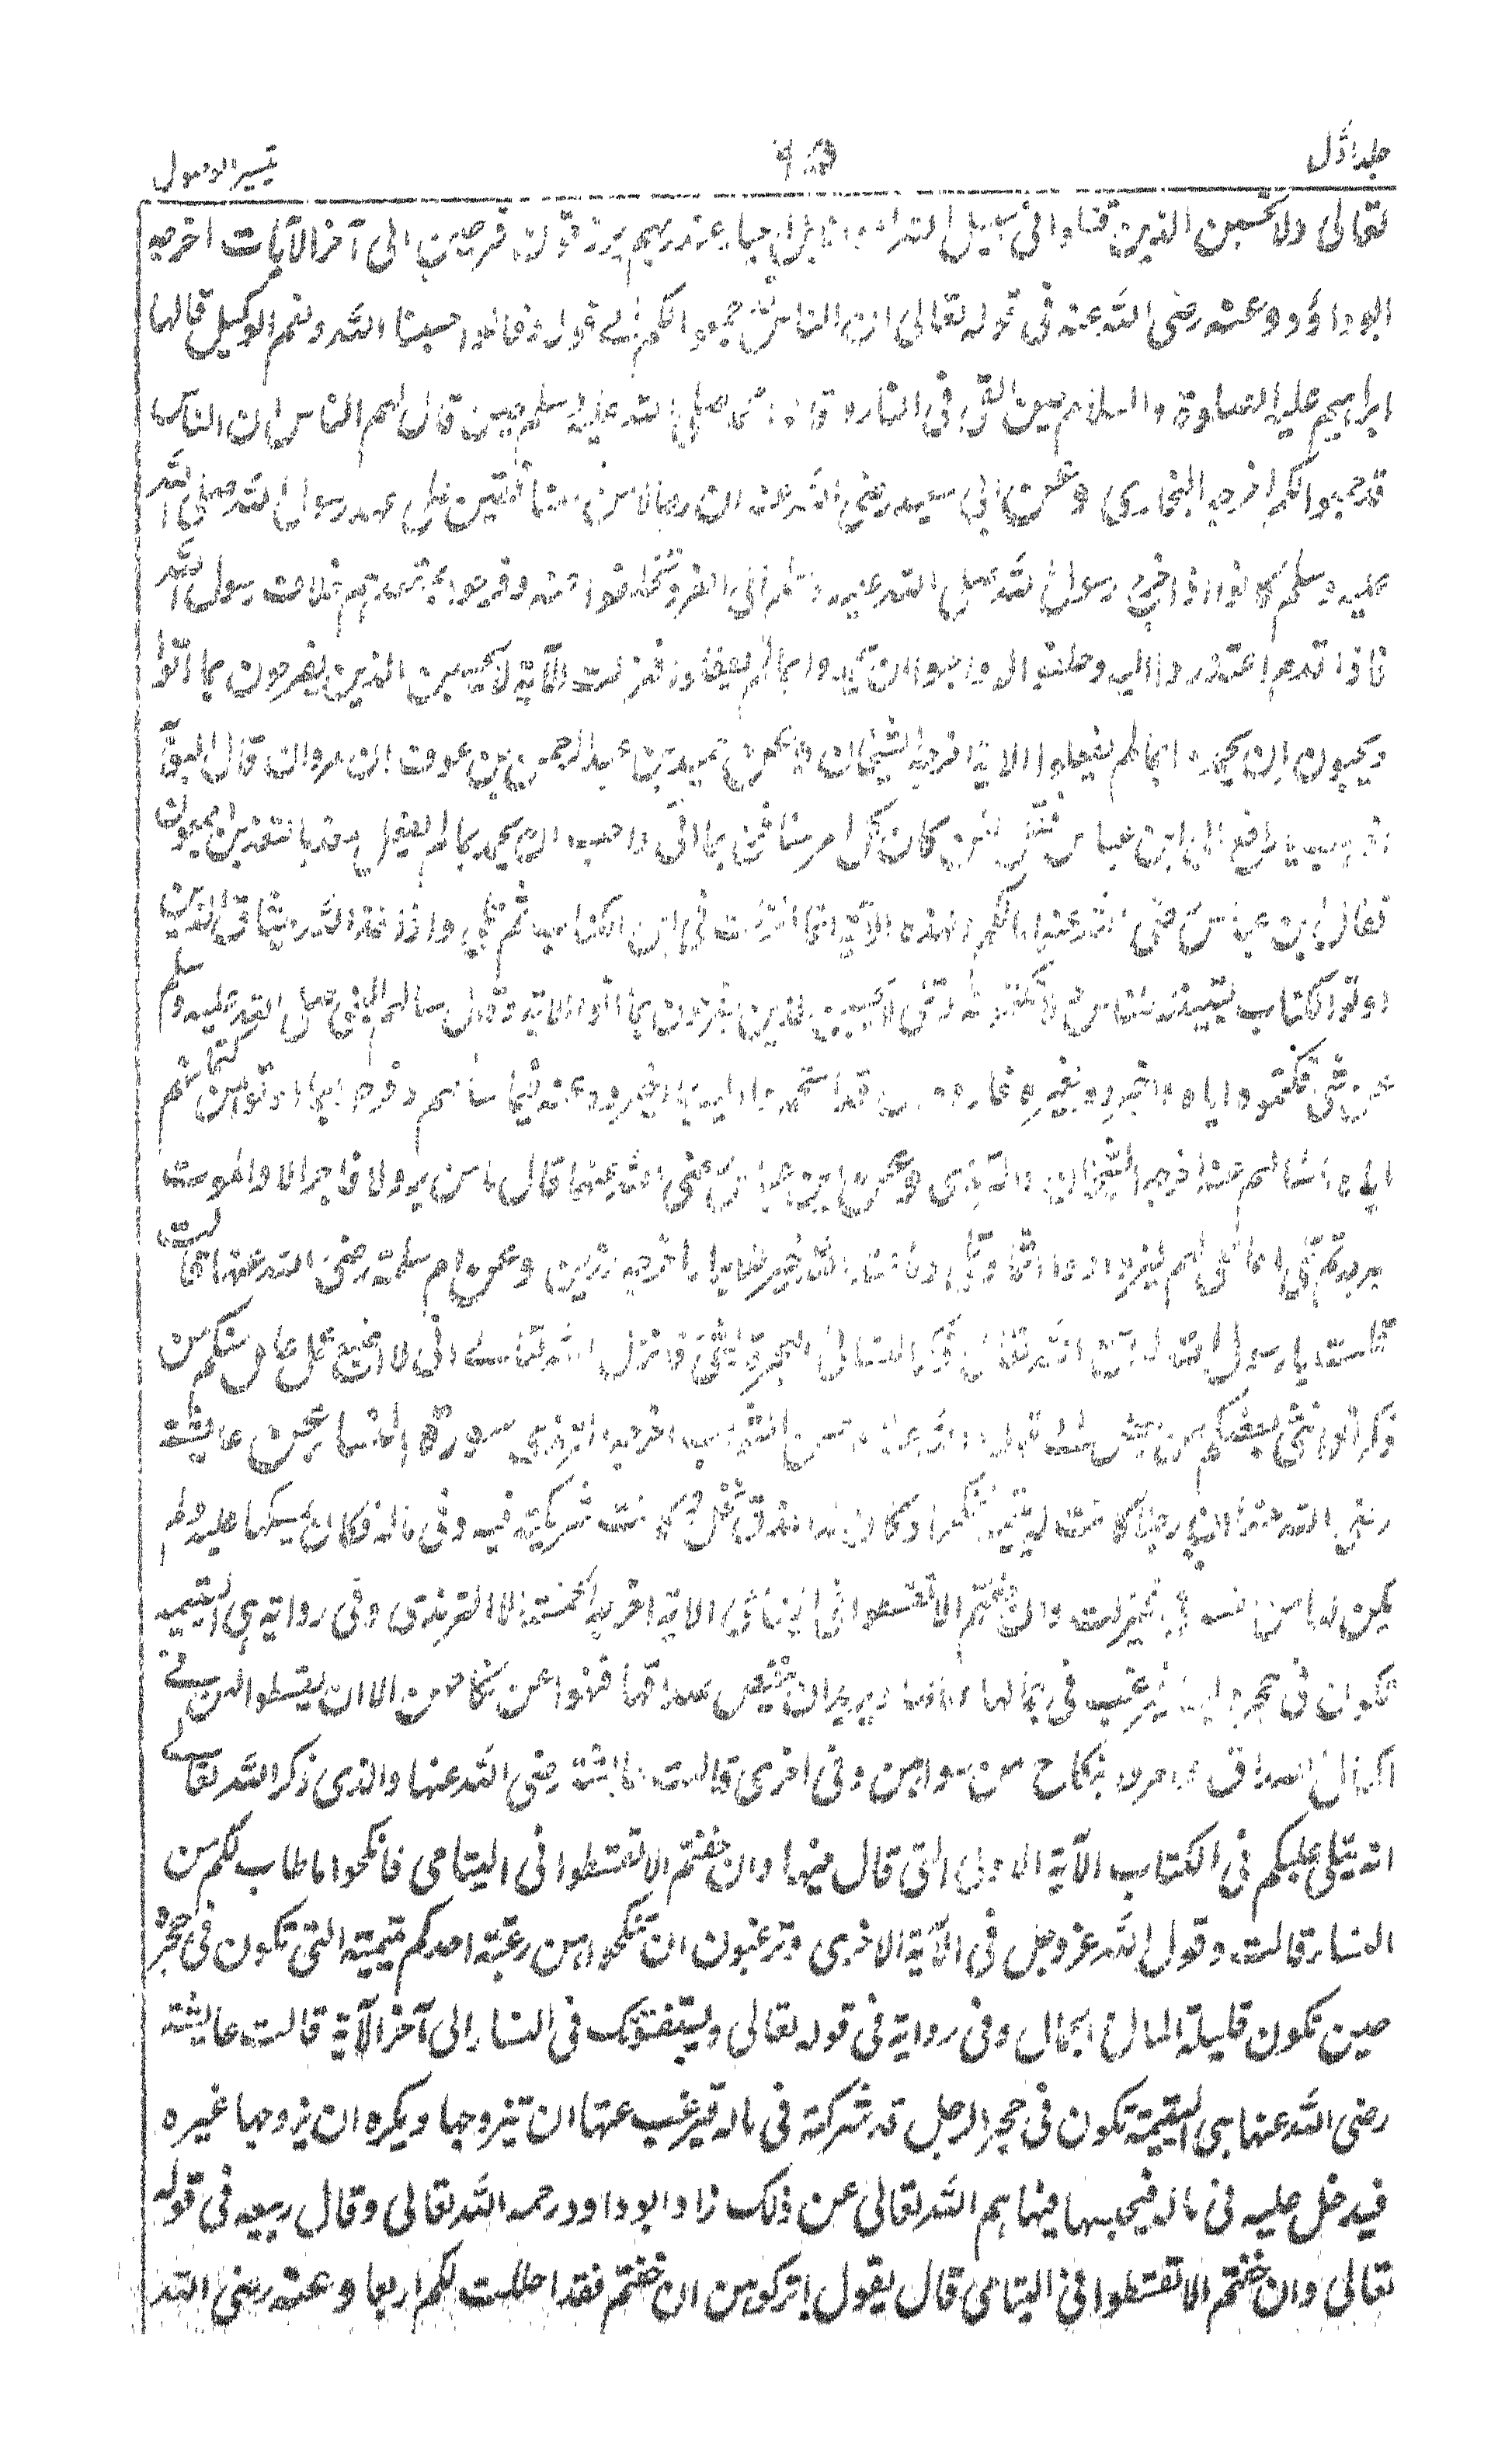 جلد اوّل
تيسير الاصول
تعالى ولا تحسبن الذين قتلوا فى سبيل الله عند ربهم يرزقون فرحين الى آخر الآيات اخرجه
ابوداؤد وعنه رضى الله عنه فى قوله تعالى ان الناس قد جمعوا لكم الى قوله وقالوا حسبنا الله ونعم الوكيل قالها
ابراهيم عليه الصلوة والسلام حين القى فى النار وقالها محمد صلى الله عليه وسلم حين قال لهم الناس ان الناس
قد جمعوا لكم اخرجه البخارى وعن ابى سعيد رضى الله عنه ان رجالا من المنافقين على عهد رسول الله صلى الله
عليه وسلم كانوا اذا خرج رسول الله صلى الله عليه وسلم الى الغزو تخلفوا عنه وفرحوا بمقعدهم خلاف رسول الله
فاذا قدم اعتذروا اليه وحلفوا له واحبوا ان يحمدوا بما لم يفعلوا فنزلت الآية لا يحسبن الذين يفرحون بما اتوا
ويحبون ان يحمدوا بما لم يفعلوا الاية اخرجه الشيخان وعن حميد بن عبد الرحمن بن عوف ان مروان قال لبوّا
اذهب يا رافع الى ابن عباس فقل لئن كان كل امر منا فرح بما اتى واحب ان يحمد بما لم يفعل معذبا لنعذبن اجمعون
فقال ابن عباس رضى الله عنهما مالكم ولهذه الآية انما انزلت فى اهل الكتاب ثم تلى واذ اخذ الله ميثاق الذين
اوتوا الكتاب لتبيننه للناس ولا تكتمونه وتلى لا يحسبن الذين يفرحون بما اتوا الاية وقال سالهم النبى صلى الله عليه وسلم
عن شئ فكتموه اياه واخبروه بغيره قد استحمدوا اليه بما اخبروه عنه فيما سألهم وفرحوا بما اوتوا من كتمانهم
اياه ما سالهم عنه اخرجه الشيخان والترمذى وعن ابن عباس رضى الله عنهما قال ما من بر ولا فاجر الا والموت
خير له ثم تلى انما نملى لهم ليزدادوا اثما وتلى وما عند الله خير للابرار اخرجه رزين وعن ام سلمة رضى الله عنها قالت
قلت يا رسول الله لا اسمع الله تعالى ذكر النساء فى الهجرة بشئ فانزل الله تعالے انى لا اضيع عمل عامل منكم من
ذكر او انثى بعضكم من بعض الى قوله والله عنده حسن الثواب اخرجه الترمذى سورة النساء عن عايشة
رضى الله عنها ان رجلا كانت له يتيمة فنكحها وكان لها عذق نخل وكانت شريكته فيه وفى ماله فكان يمسكها عليه ولم
يكن لها من نفسه شئ فنزلت وان خفتم الا تقسطوا فى اليتامى الاية اخرجه الخمسة الا الترمذى وفى رواية هى اليتيمة
تكون فى حجر وليها فيرغب فى جمالها ومالها ويريد ان ينتقص صداقها فنهوا عن نكاحهن الا ان يقسطوا لهن فى
اكمال الصداق وامروا بنكاح من سواهن وفى اخرى قالت عائشة رضى الله عنها والذى ذكر الله تعالے
انه يتلى عليكم فى الكتاب الآية الاولى التى قال فيها وان خفتم الا تقسطوا فى اليتامى فانكحوا ما طاب لكم من
النساء قالت وقول الله عزوجل فى الآية الاخرى وترغبون ان تنكحوهن رغبة احدكم يتيمته التى تكون فى حجره
حين تكون قليلة المال والجمال وفى رواية فى قوله تعالى ويستفتونك فى النساء الى آخر الآية قالت عايشة
رضى الله عنها هى اليتيمة تكون فى حجر الرجل قد شركته فى ماله فيرغب عنها ان يتزوجها ويكره ان يزوجها غيره
فيدخل عليه فى ماله فيحبسها فنهاهم الله تعالى عن ذلك زاد ابو داود رحمه الله تعالى وقال ربيعه فى قوله
تعالى وان خفتم الا تقسطوا فى اليتامى قال يقول اتركوهن ان خفتم فقد احللت لكم اربعا وعنه رضى الله